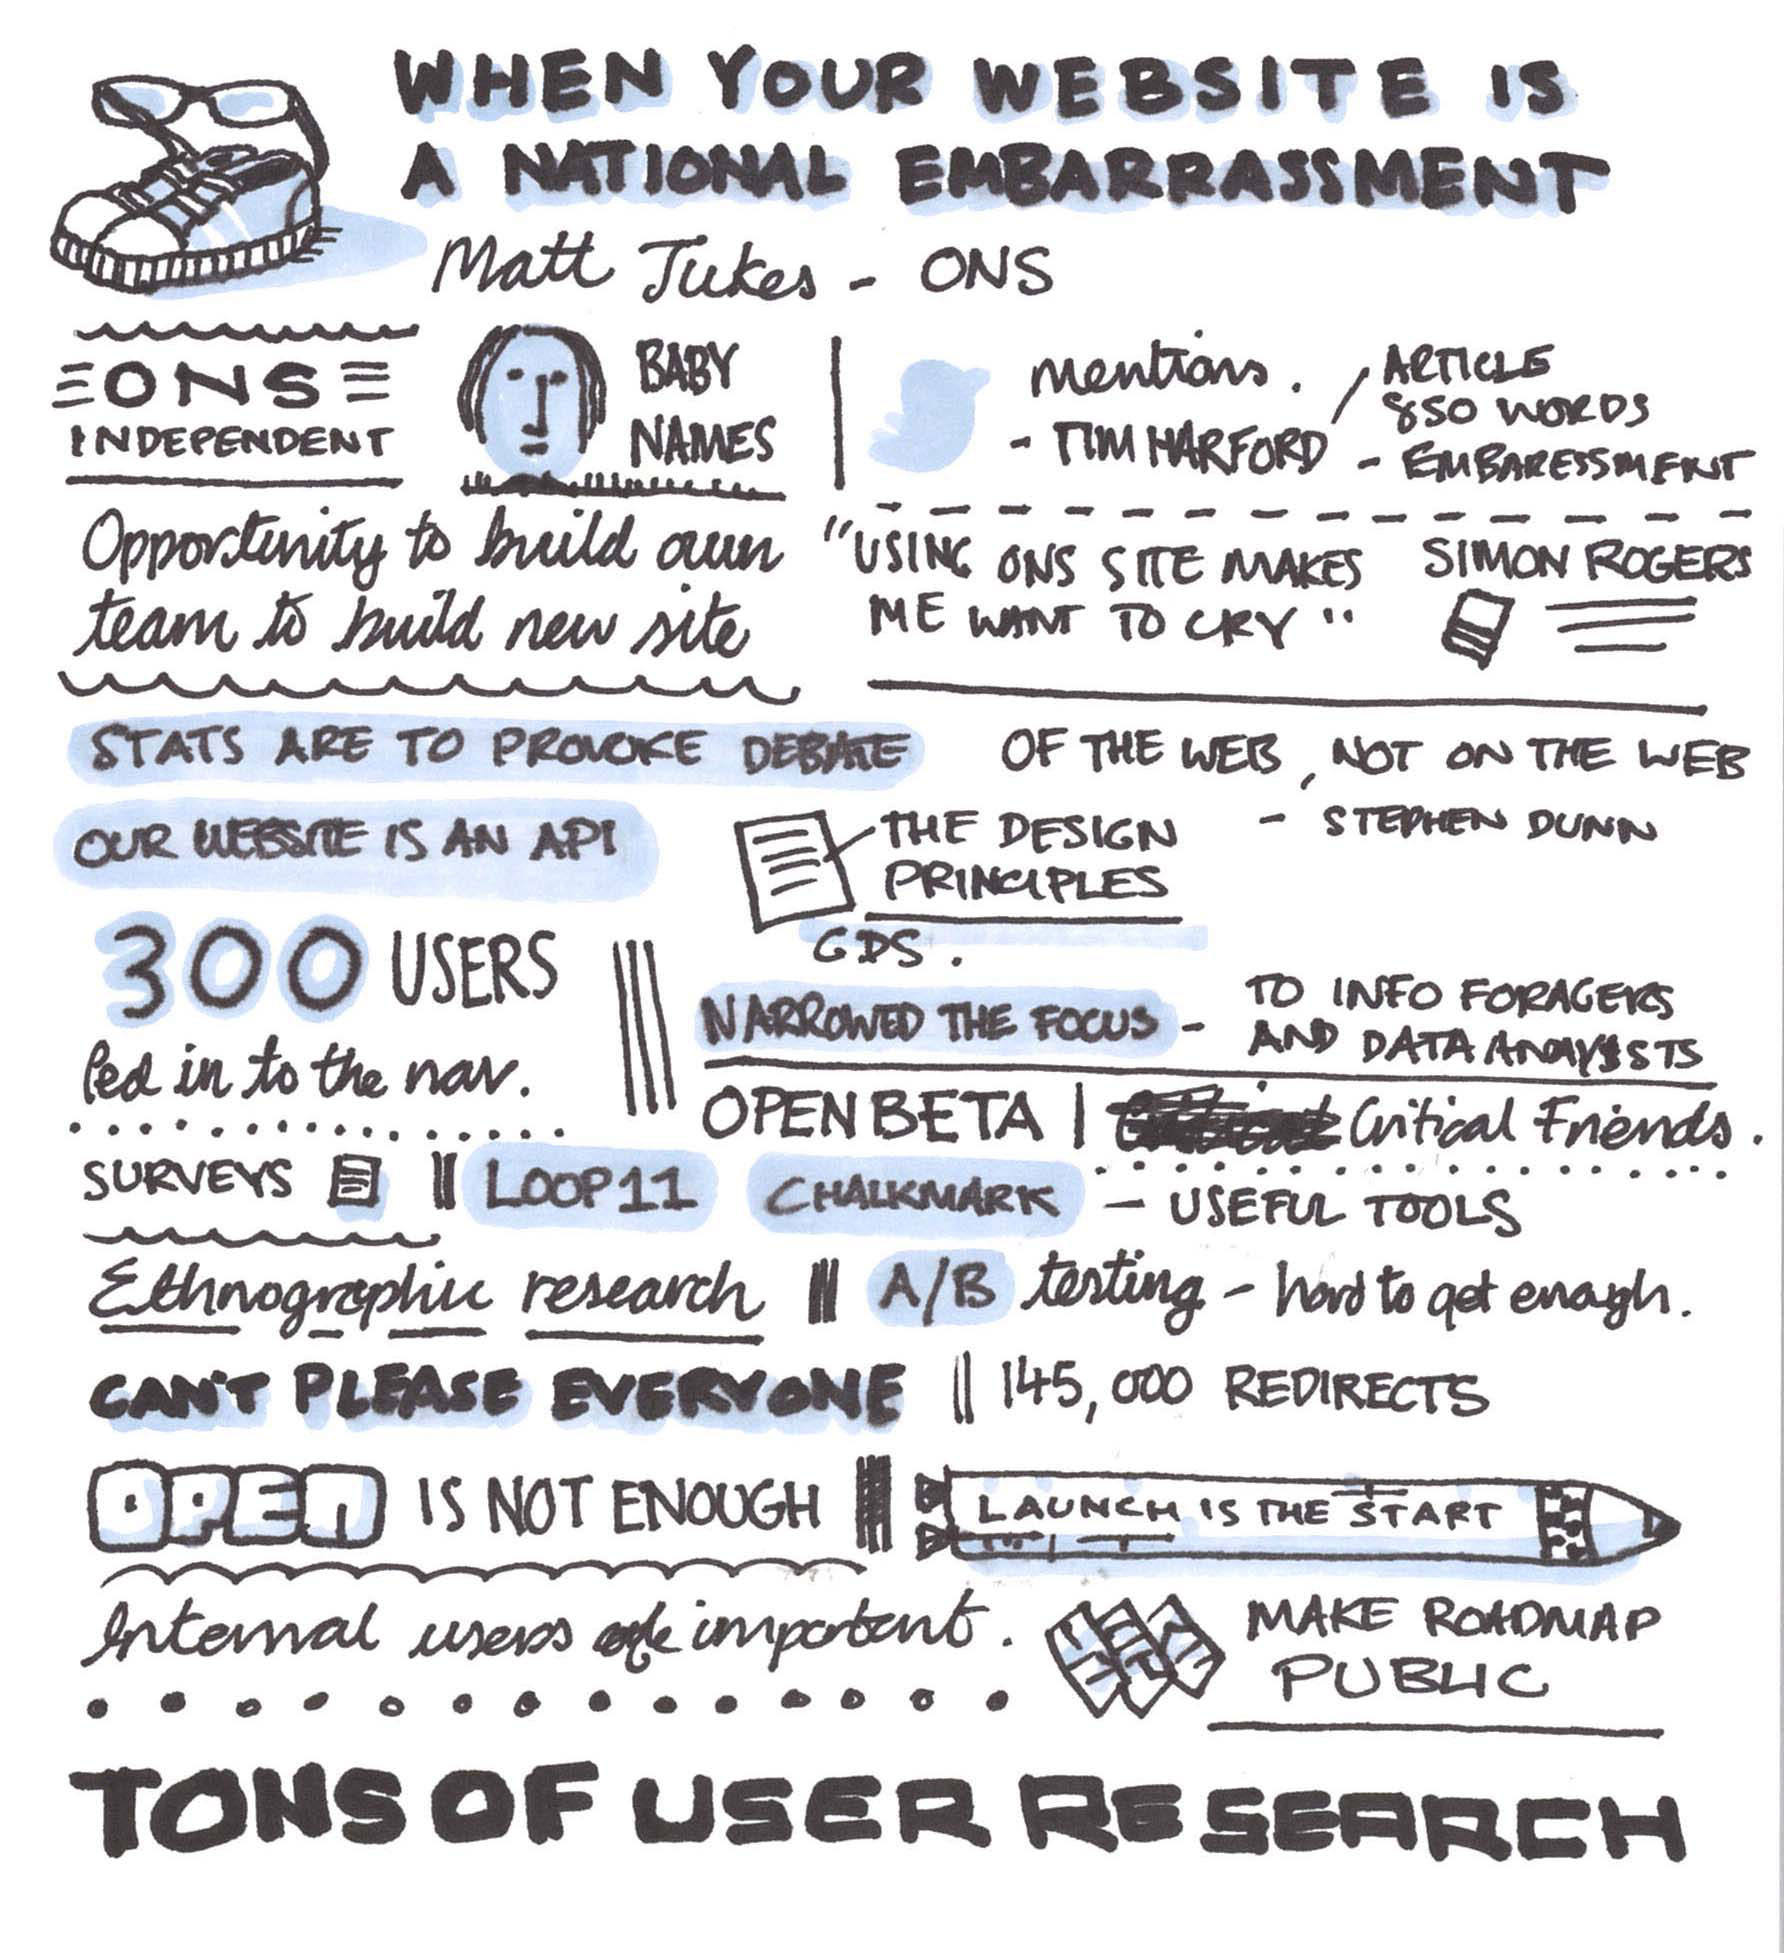 WHEN YOUR WEBSITE IS
A NATIONAL EMBARRASSMENT
Matt Jukes - ONS
ONS
INDEPENDENT
BABY
NAMES
mentions.
- TIM HARFORD / ARTICLE
850 WORDS
- EMBARESSMENT
Opportunity to build own
team to build new site
"USING ONS SITE MAKES
ME WANT TO CRY"
SIMON ROGERS
STATS ARE TO PROVOKE DEBATE
OF THE WEB, NOT ON THE WEB
- STEPHEN DUNN
OUR WEBSITE IS AN API
THE DESIGN
PRINCIPLES
GDS.
300 USERS
fed in to the nav.
NARROWED THE FOCUS -
TO INFO FORAGERS
AND DATA ANALYSTS
OPEN BETA | Critical Friends.
SURVEYS
LOOP11 CHALKMARK - USEFUL TOOLS
Ethnographic research
A/B testing - hard to get enough.
CAN'T PLEASE EVERYONE
145,000 REDIRECTS
OPEN IS NOT ENOUGH
LAUNCH IS THE START
Internal users are important.
MAKE ROADMAP
PUBLIC
TONS OF USER RESEARCH